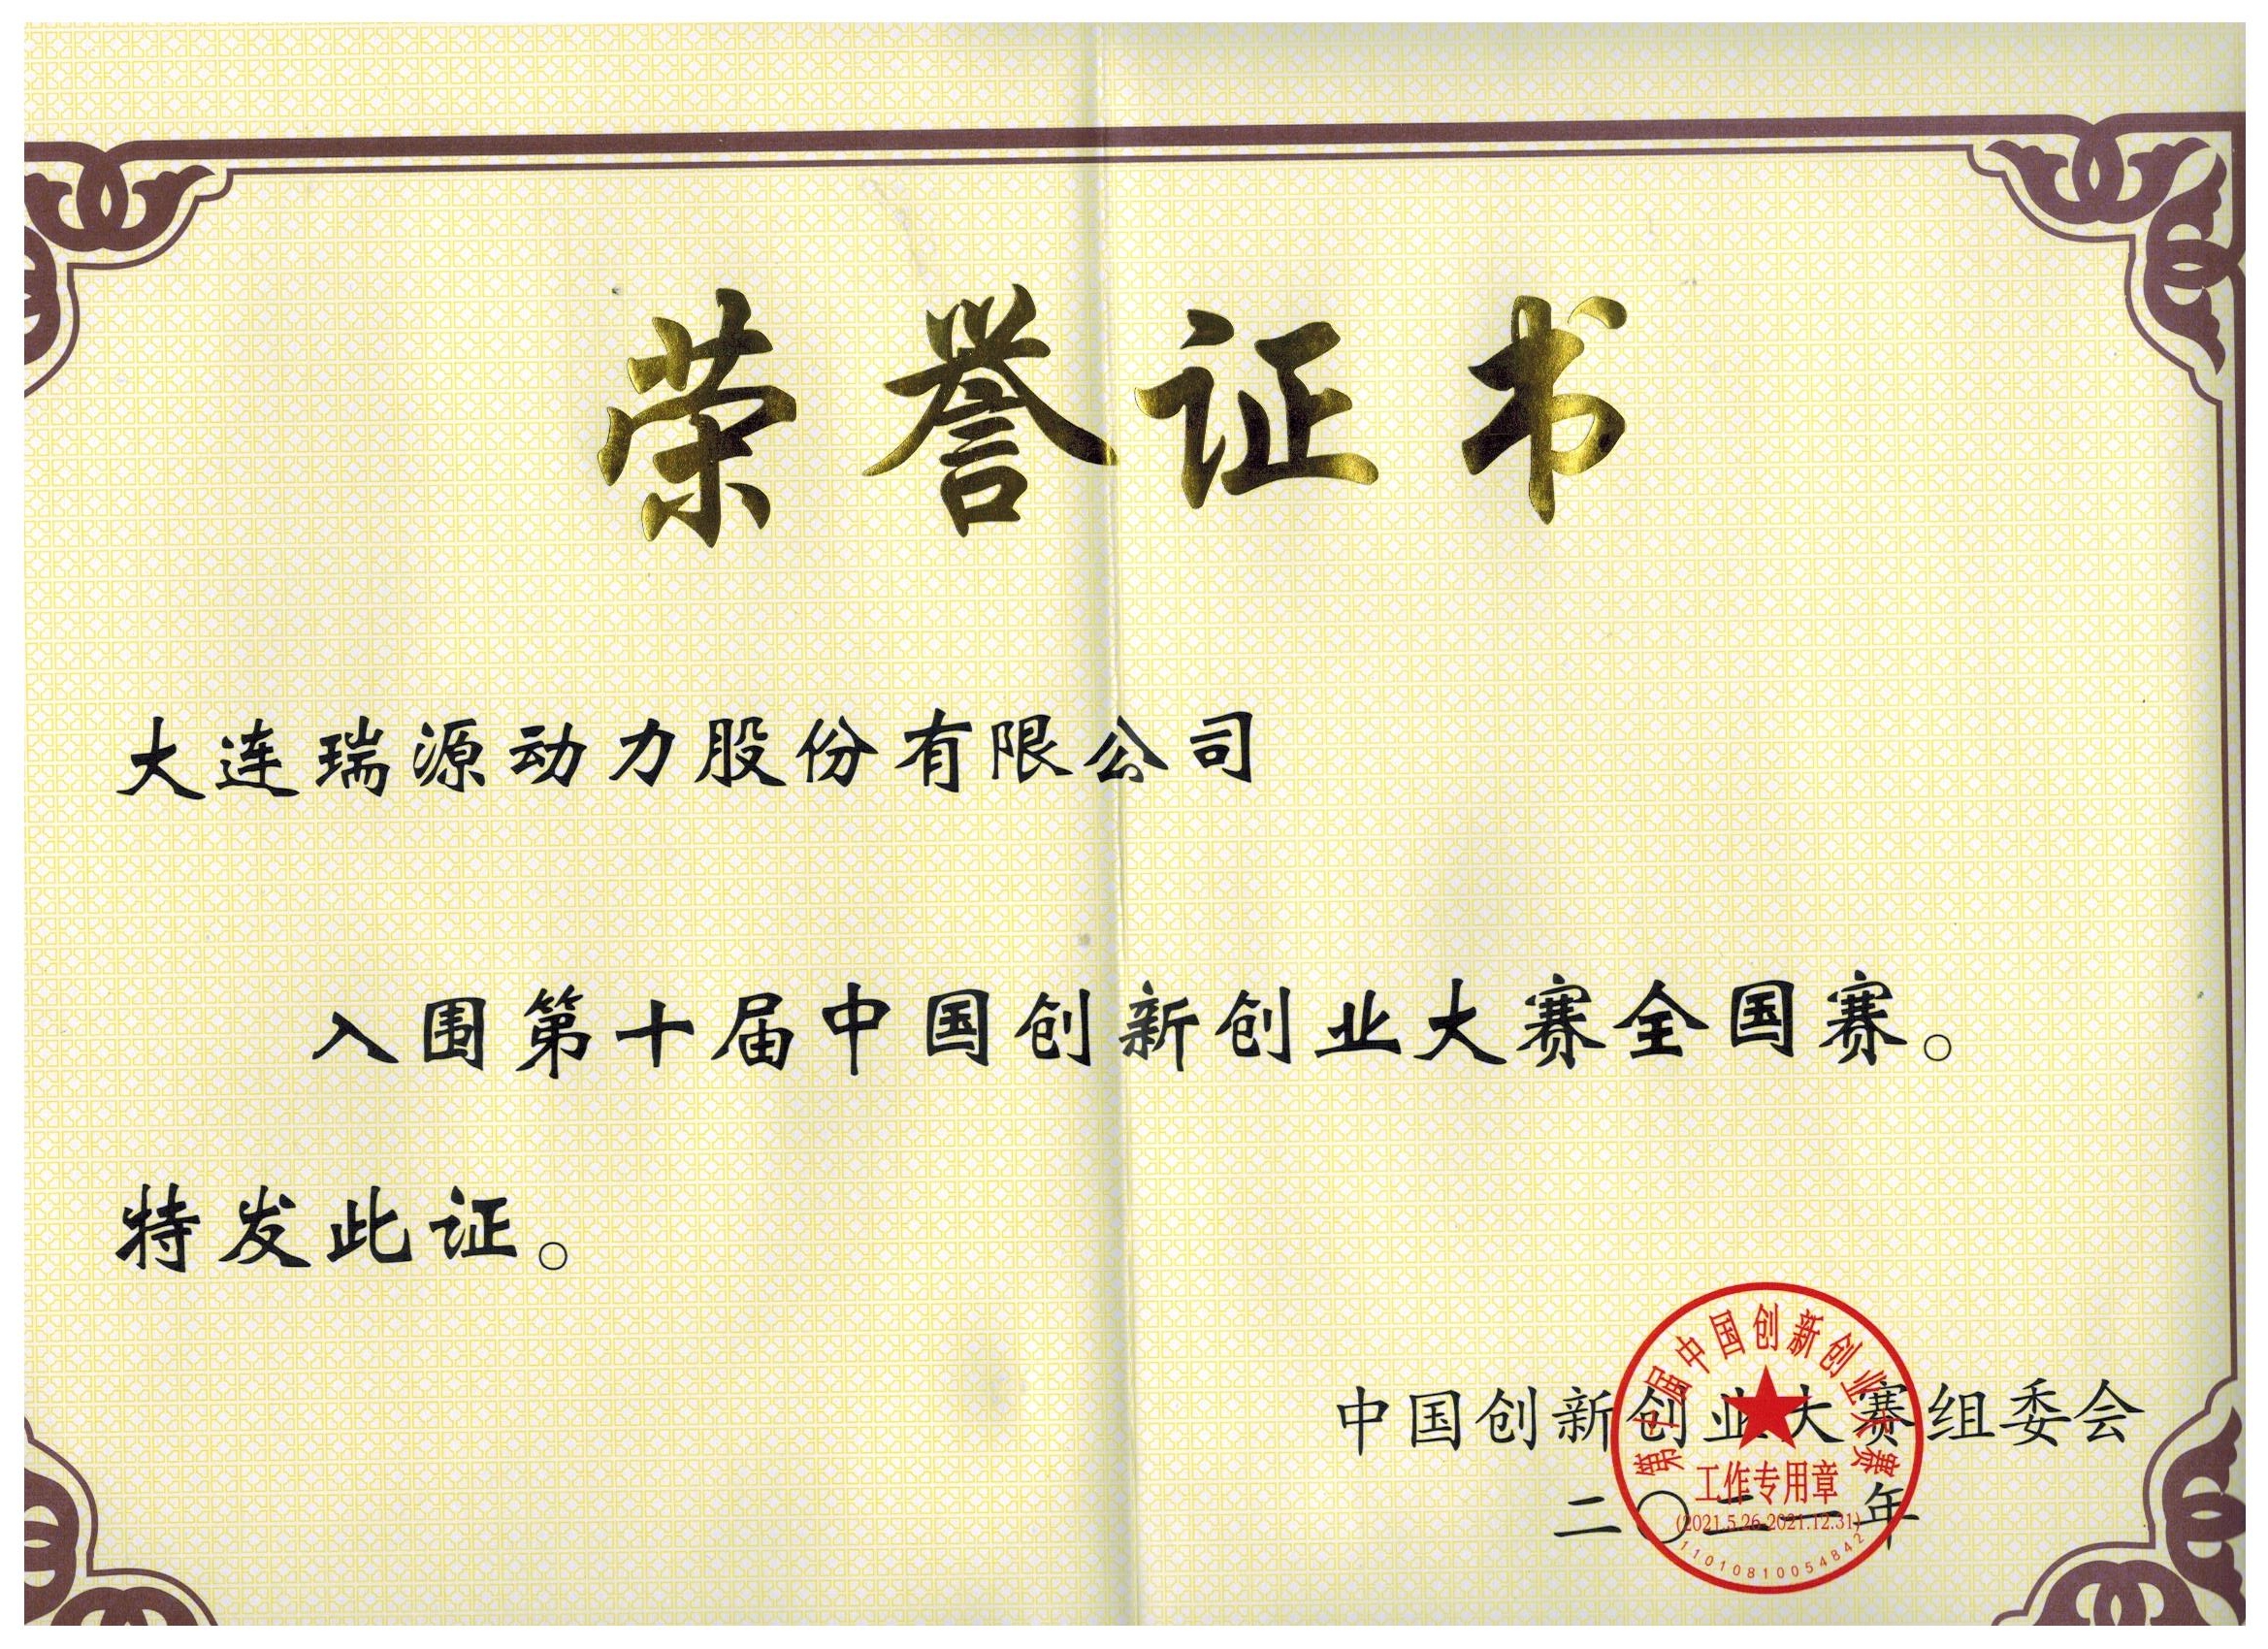 荣誉证书
大连瑞源动力股份有限公司
入围第十届中国创新创业大赛全国赛。
特发此证。
中国创新创业大赛组委会
二〇二一年
第十届中国创新创业大赛
工作专用章
(2021.5.26-2021.12.31)
11010810054842